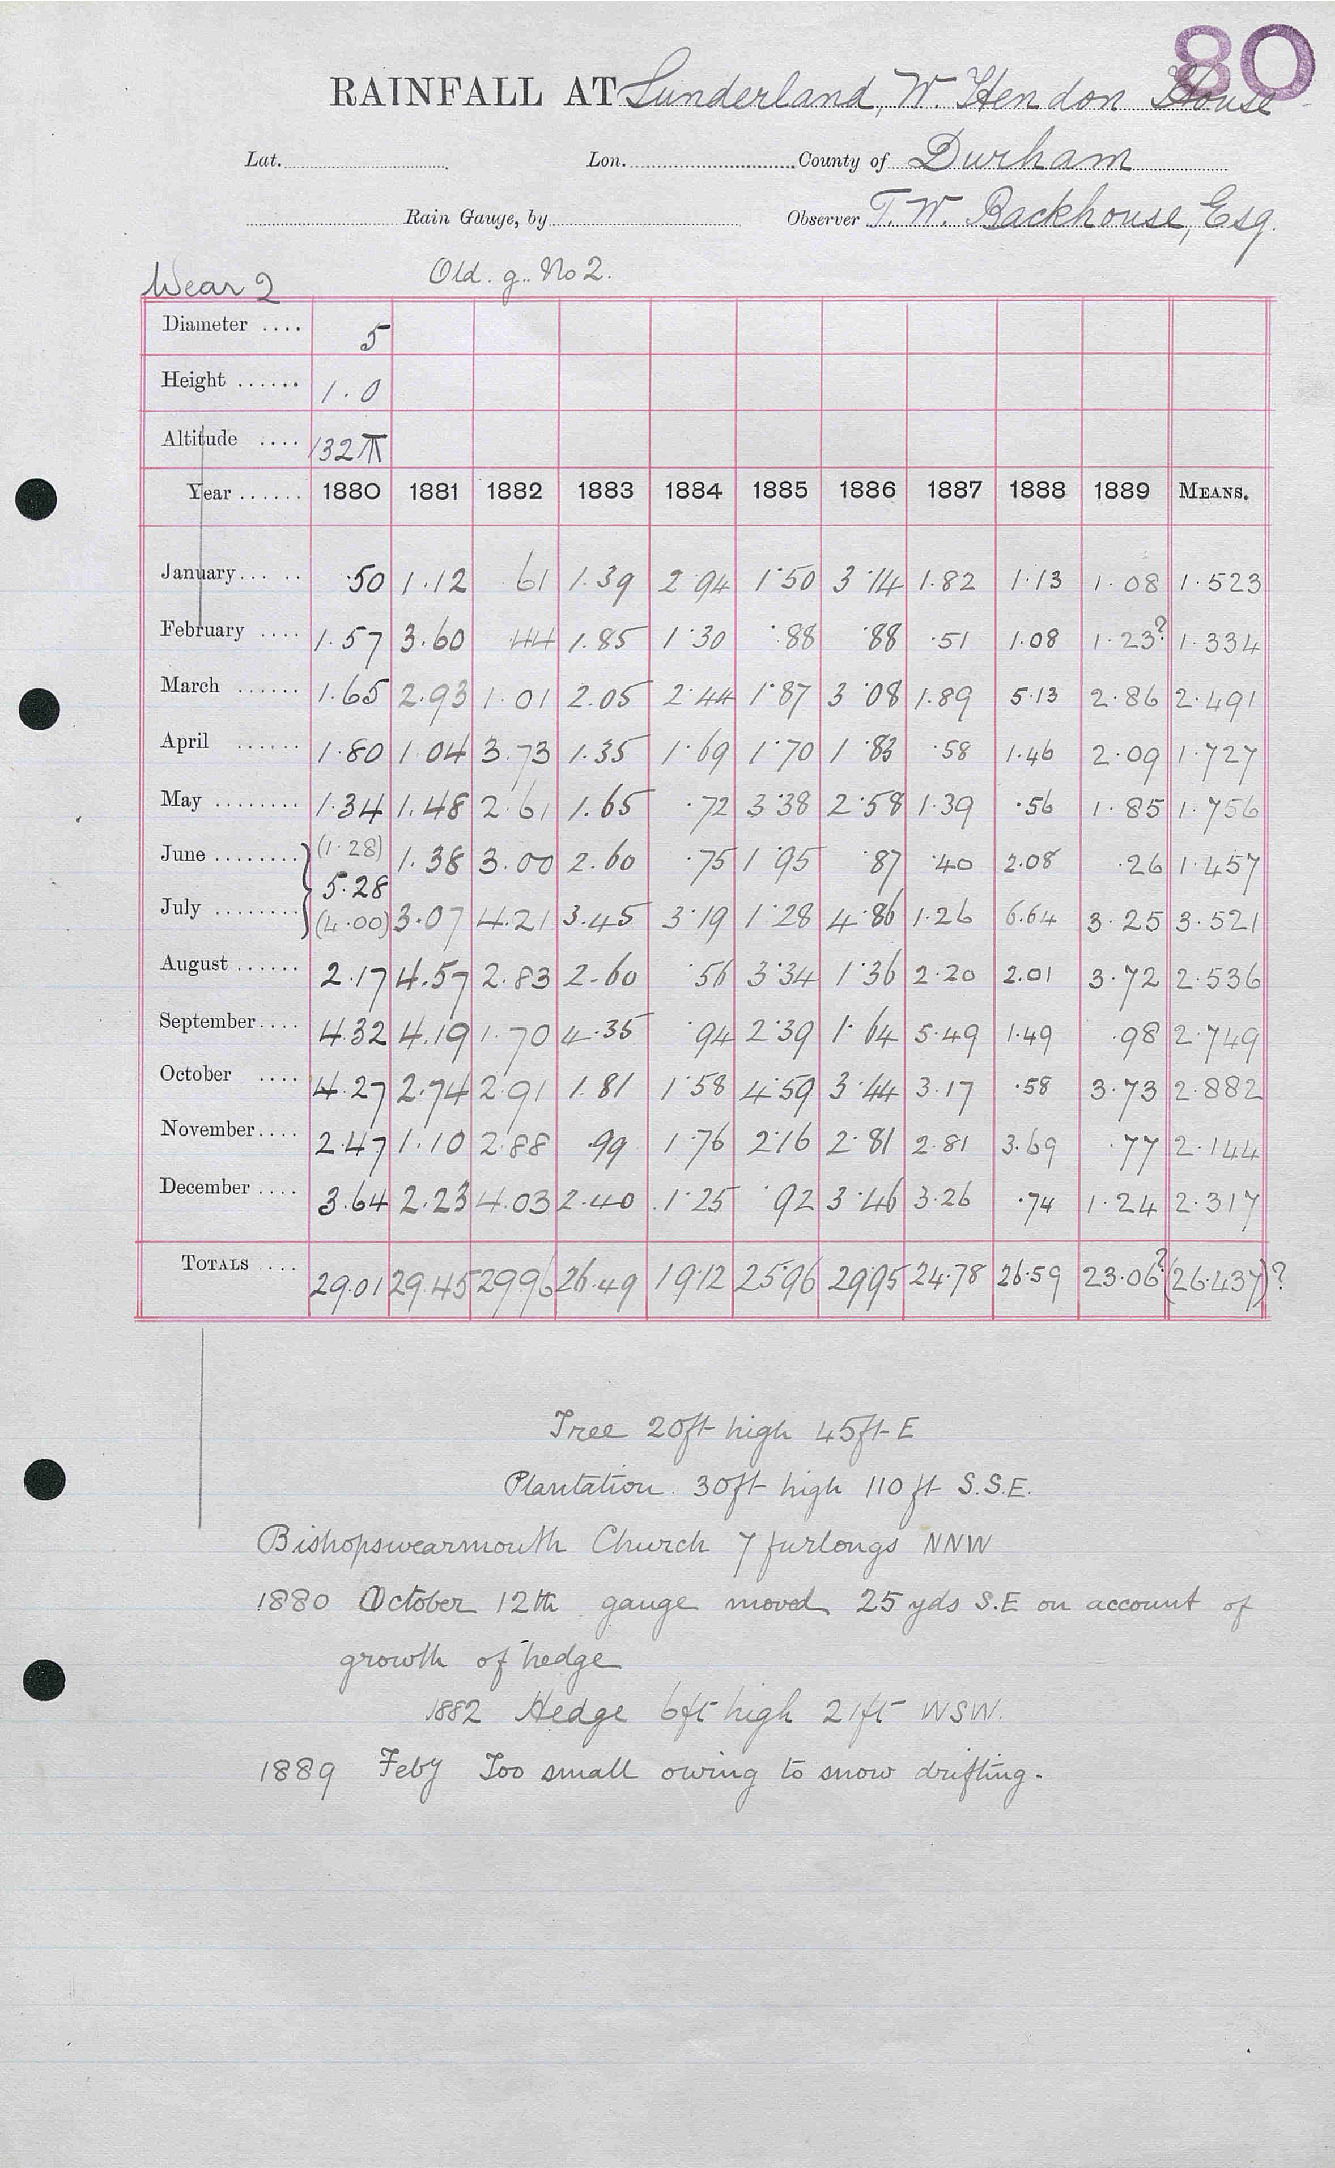 80
RAINFALL AT Sunderland, W. Hendon House
Lat. Lon. County of Durham
Rain Gauge, by Observer T. W. Backhouse, Esq.
Wear 2 Old. g.. No 2.
Diameter .... 5
Height ...... 1.0
Altitude .... 132
Year ...... 1880 1881 1882 1883 1884 1885 1886 1887 1888 1889 MEANS.
January... .. .50 1.12 .61 1.39 2.94 1.50 3.14 1.82 1.13 1.08 1.523
February .... 1.57 3.60 .44 1.85 1.30 .88 .88 .51 1.08 1.23? 1.334
March ...... 1.65 2.93 1.01 2.05 2.44 1.87 3.08 1.89 5.13 2.86 2.491
April ...... 1.80 1.04 3.73 1.35 1.69 1.70 1.83 .58 1.46 2.09 1.727
May ........ 1.34 1.48 2.61 1.65 .72 3.38 2.58 1.39 .56 1.85 1.756
June ........ (1.28) 1.38 3.00 2.60 .75 1.95 .87 .40 2.08 .26 1.457
5.28
July ........ (4.00) 3.07 4.21 3.45 3.19 1.28 4.86 1.26 6.64 3.25 3.521
August ...... 2.17 4.57 2.83 2.60 .56 3.34 1.36 2.20 2.01 3.72 2.536
September.... 4.32 4.19 1.70 4.35 .94 2.39 1.64 5.49 1.49 .98 2.749
October .... 4.27 2.74 2.91 1.81 1.58 4.59 3.44 3.17 .58 3.73 2.882
November.... 2.47 1.10 2.88 .99 1.76 2.16 2.81 2.81 3.69 .77 2.144
December .... 3.64 2.23 4.03 2.40 1.25 .92 3.46 3.26 .74 1.24 2.317
TOTALS .... 29.01 29.45 29.96 26.49 19.12 25.96 29.95 24.78 26.59 23.06? (26.437)?
Tree 20ft high 45ft E
Plantation 30ft high 110 ft S.S.E.
Bishopswearmouth Church 7 furlongs NNW
1880 October 12th gauge moved 25 yds S.E on account of
growth of hedge
1882 Hedge 6ft high 21ft WSW.
1889 Feby Too small owing to snow drifting.